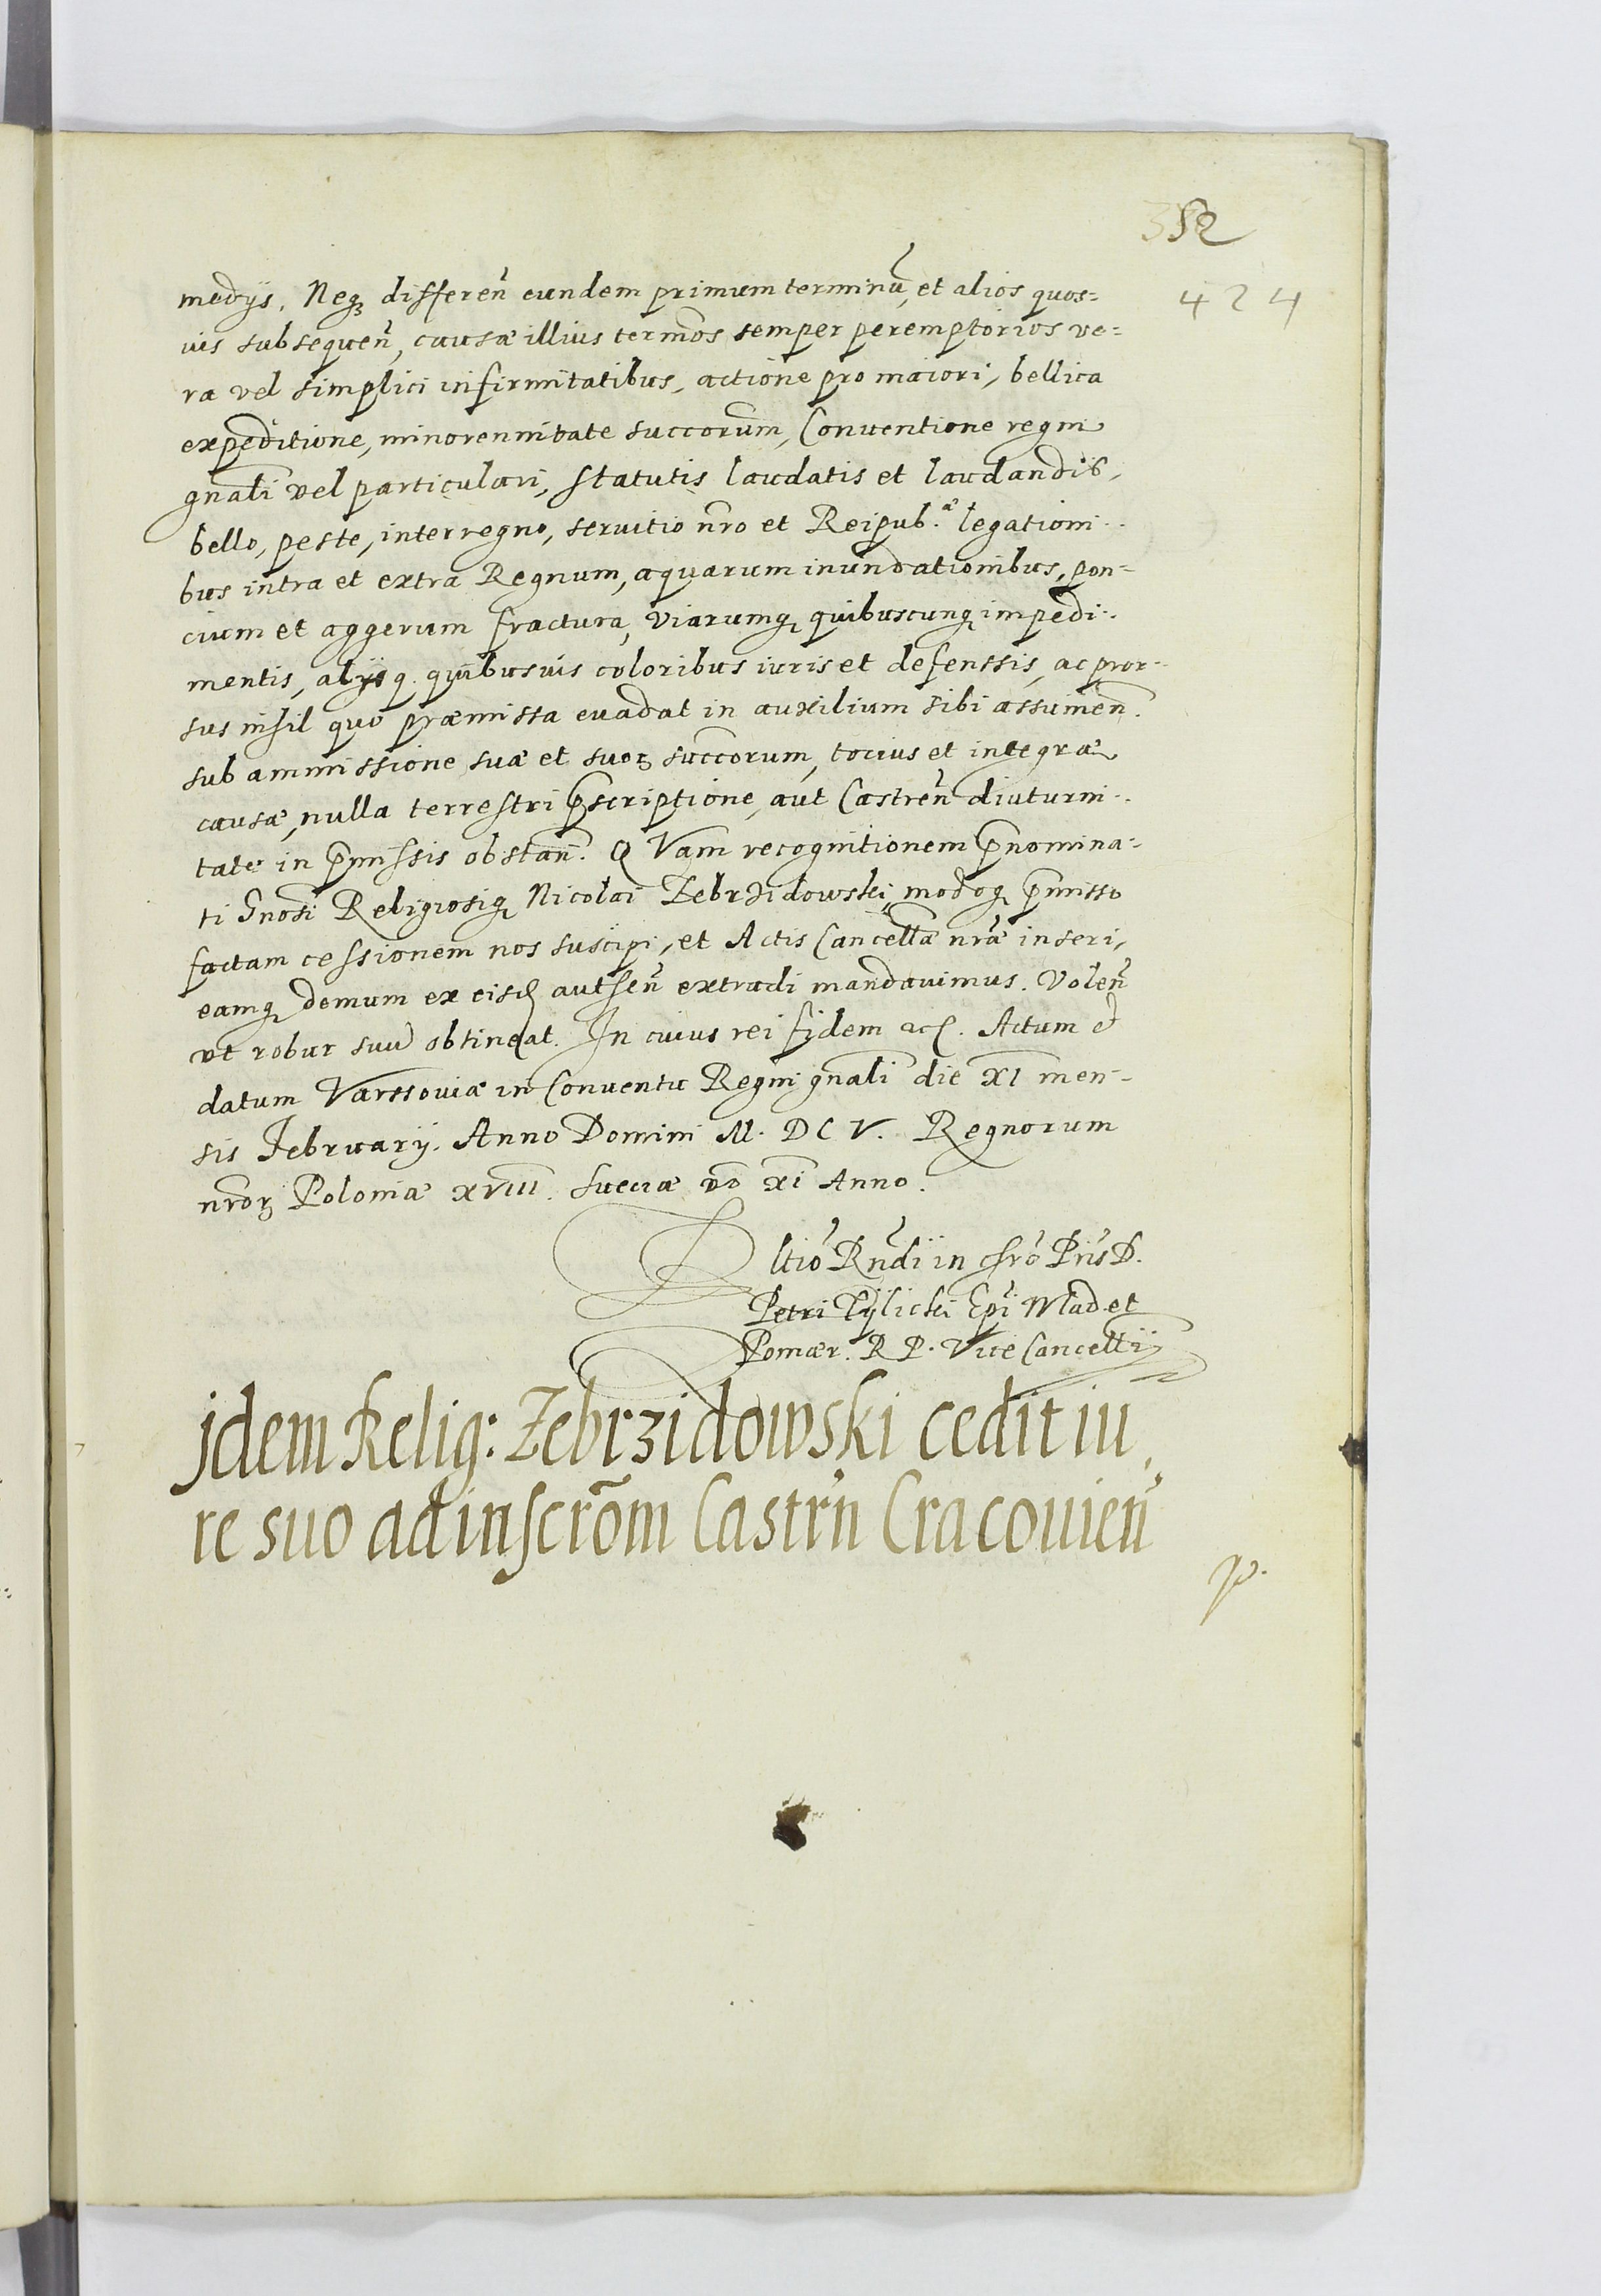 352
424
medijs. Neq₃ differen̄ eundem primum terminū, et alios quos=
uis subsequen̄, causæ illius termōs semper peremptorios ve=
ra vel simplici infirmitatibus, actione pro maiori, bellica
expeditione, minorennitate succorum, Conventione regni
gnāli vel particulari, statutis laudatis et laudandis,
bello, peste, interregno, servitio nr̄o et Reipub.ᵃ legationi-
bus intra et extra Regnum, aquarum inundationibus, pon-
cium et aggerum fractura, viarumq₃ quibuscunq₃ impedi-
mentis, alijsq. quibusuis coloribus iuris et defenssis, ac pror-
sus nihil quo præmissa evadat in auxilium sibi assumen̄.
sub ammissione suæ et suoꝝ succorum, tocius et integræ
causæ, nulla terrestri p̄scriptione, aut Castren̄ diuturni-
tate in p̄missis obstan̄. Q Vam recognitionem p̄nomina-
ti Gnosi Religiosiq₃ Nicolai Zebrzidowski, modoq₃ p̄misso
factam cessionem nos suscipi, et Actis Cancellæ nr̄æ inseri,
eamq₃ demum ex eisd authen̄ extradi mandavimus. Volen̄
vt robur suū obtineat. In cuius rei fidem ac. Actum et
datum Varssoviæ in Conventu Regni gnāli die XI men-
sis Februarij. Anno Domini M. D C V. Regnorum
nr̄oꝝ Poloniæ XVIII. Sueciæ vō XI Anno.
Rltiō Rn̄di in Chr̄o Pr̄is D.
Petri Tylicki Ep̄i Wlad. et
Pomær. R P. Vice Cancellij
Jdem Relig: Zebrzidowski cedit iu
re suo ad inscrōm Castr̄n Cracovien̄